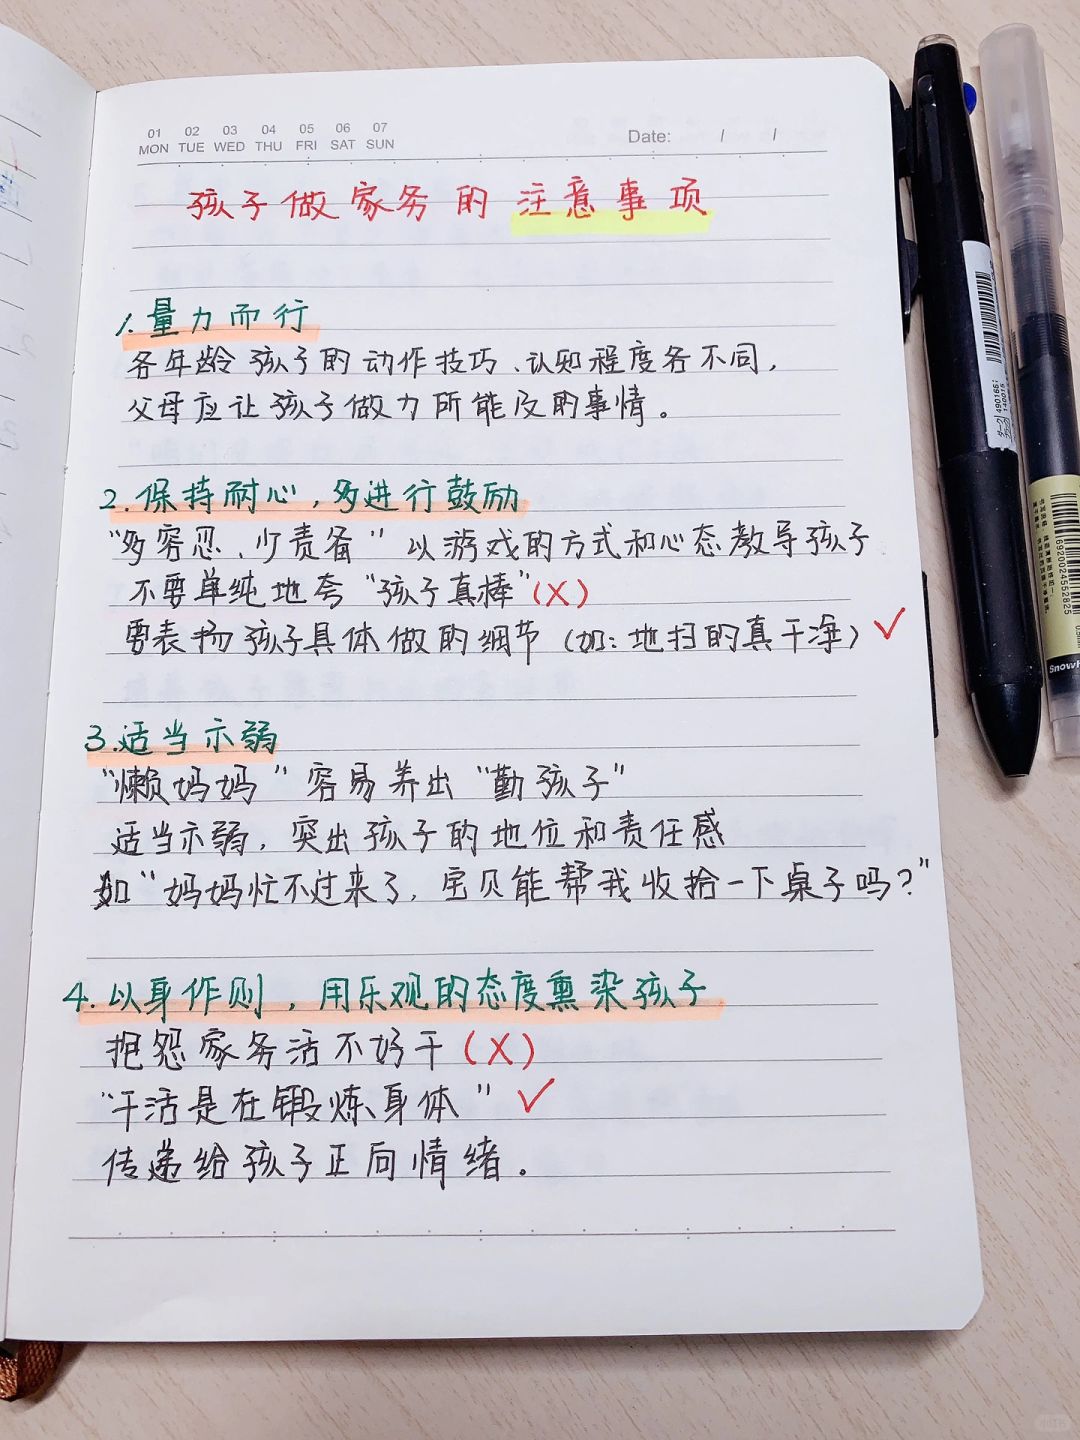 01 02 03 04 05 06 07
MON TUE WED THU FRI SAT SUN
Date: / /
孩子做家务的注意事项
1.量力而行
各年龄孩子的动作技巧、认知程度各不同,
父母应让孩子做力所能及的事情。
2.保持耐心,多进行鼓励
"多容忍、少责备"以游戏的方式和心态教导孩子
不要单纯地夸"孩子真棒"(X)
要表扬孩子具体做的细节(如:地扫的真干净)✓
3.适当示弱
"懒妈妈"容易养出"勤孩子"
适当示弱,突出孩子的地位和责任感
如"妈妈忙不过来了,宝贝能帮我收拾一下桌子吗?"
4.以身作则,用乐观的态度熏染孩子
抱怨家务活不好干(X)
"干活是在锻炼身体"✓
传递给孩子正向情绪。
490166
140015
6920024552825